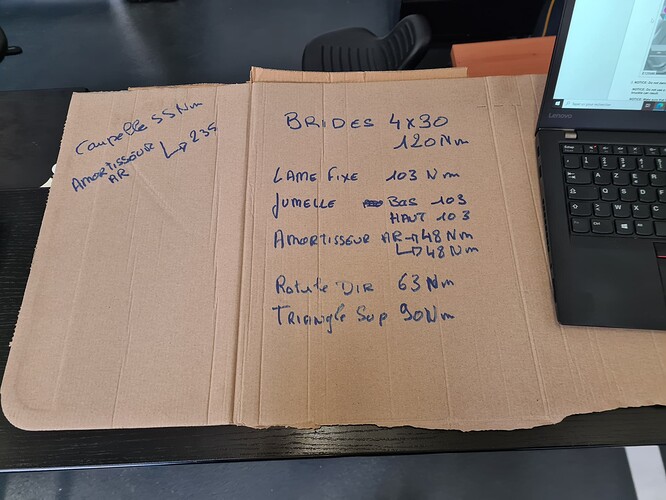 Coupelle 55Nm
AMORTISSEUR ↳ 235
AR
BRIDES 4X30
120Nm
LAME FIXE 103 Nm
JUMELLE BAS 103
HAUT 103
AMORTISSEUR AR → 48Nm
↳ 48Nm
Rotule DIR 63Nm
TRIANGLE Sup 90Nm
Lenovo